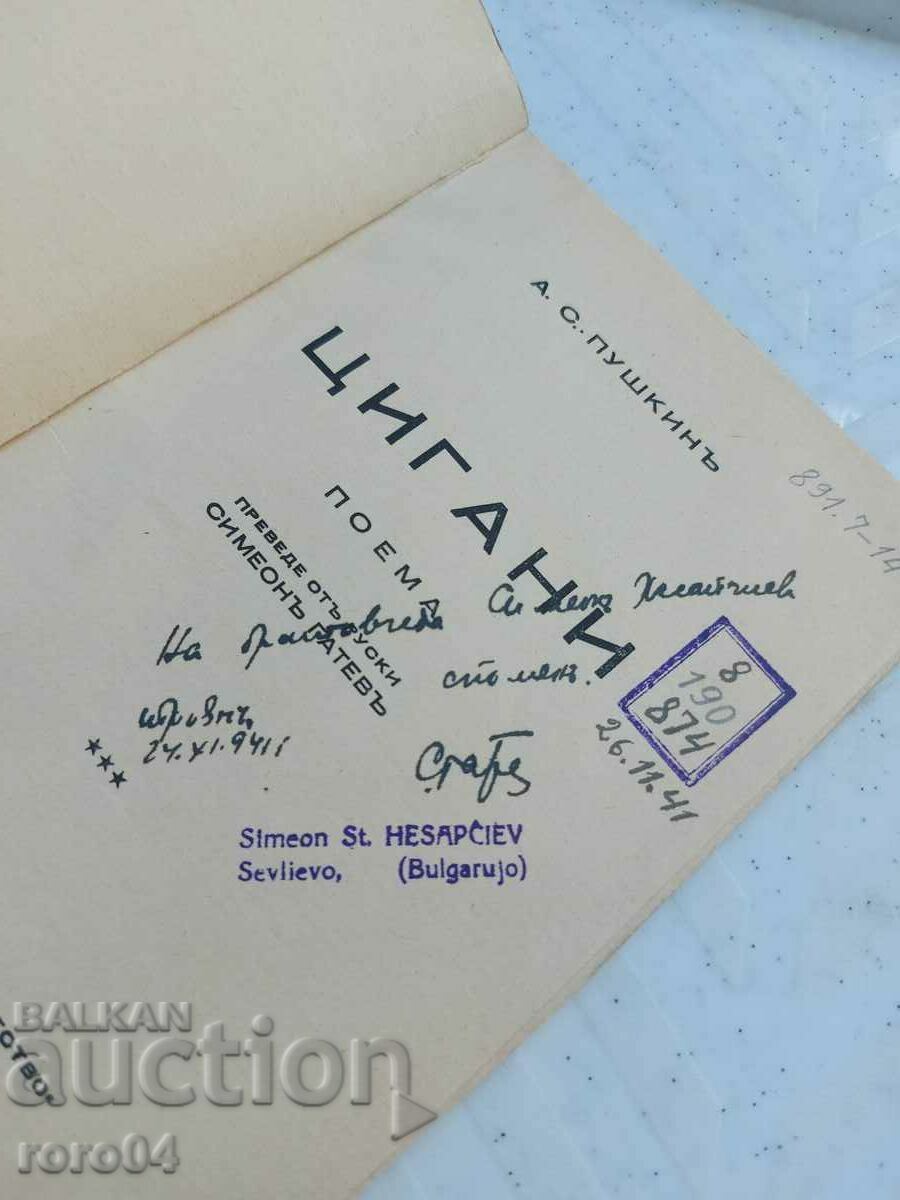 А. С. ПУШКИНЪ
ЦИГАНИ
ПОЕМА
ПРЕВЕДЕ ОТЪ РУСКИ
СИМЕОНЪ ГАТЕВЪ
***
891.7-14
На братовчеда Симеонъ
споменъ.
24.XI.941
8
190
874
26.11.41
Simeon St. HESAPČIEV
Sevlievo, (Bulgarujo)
BALKAN
auction
roro04